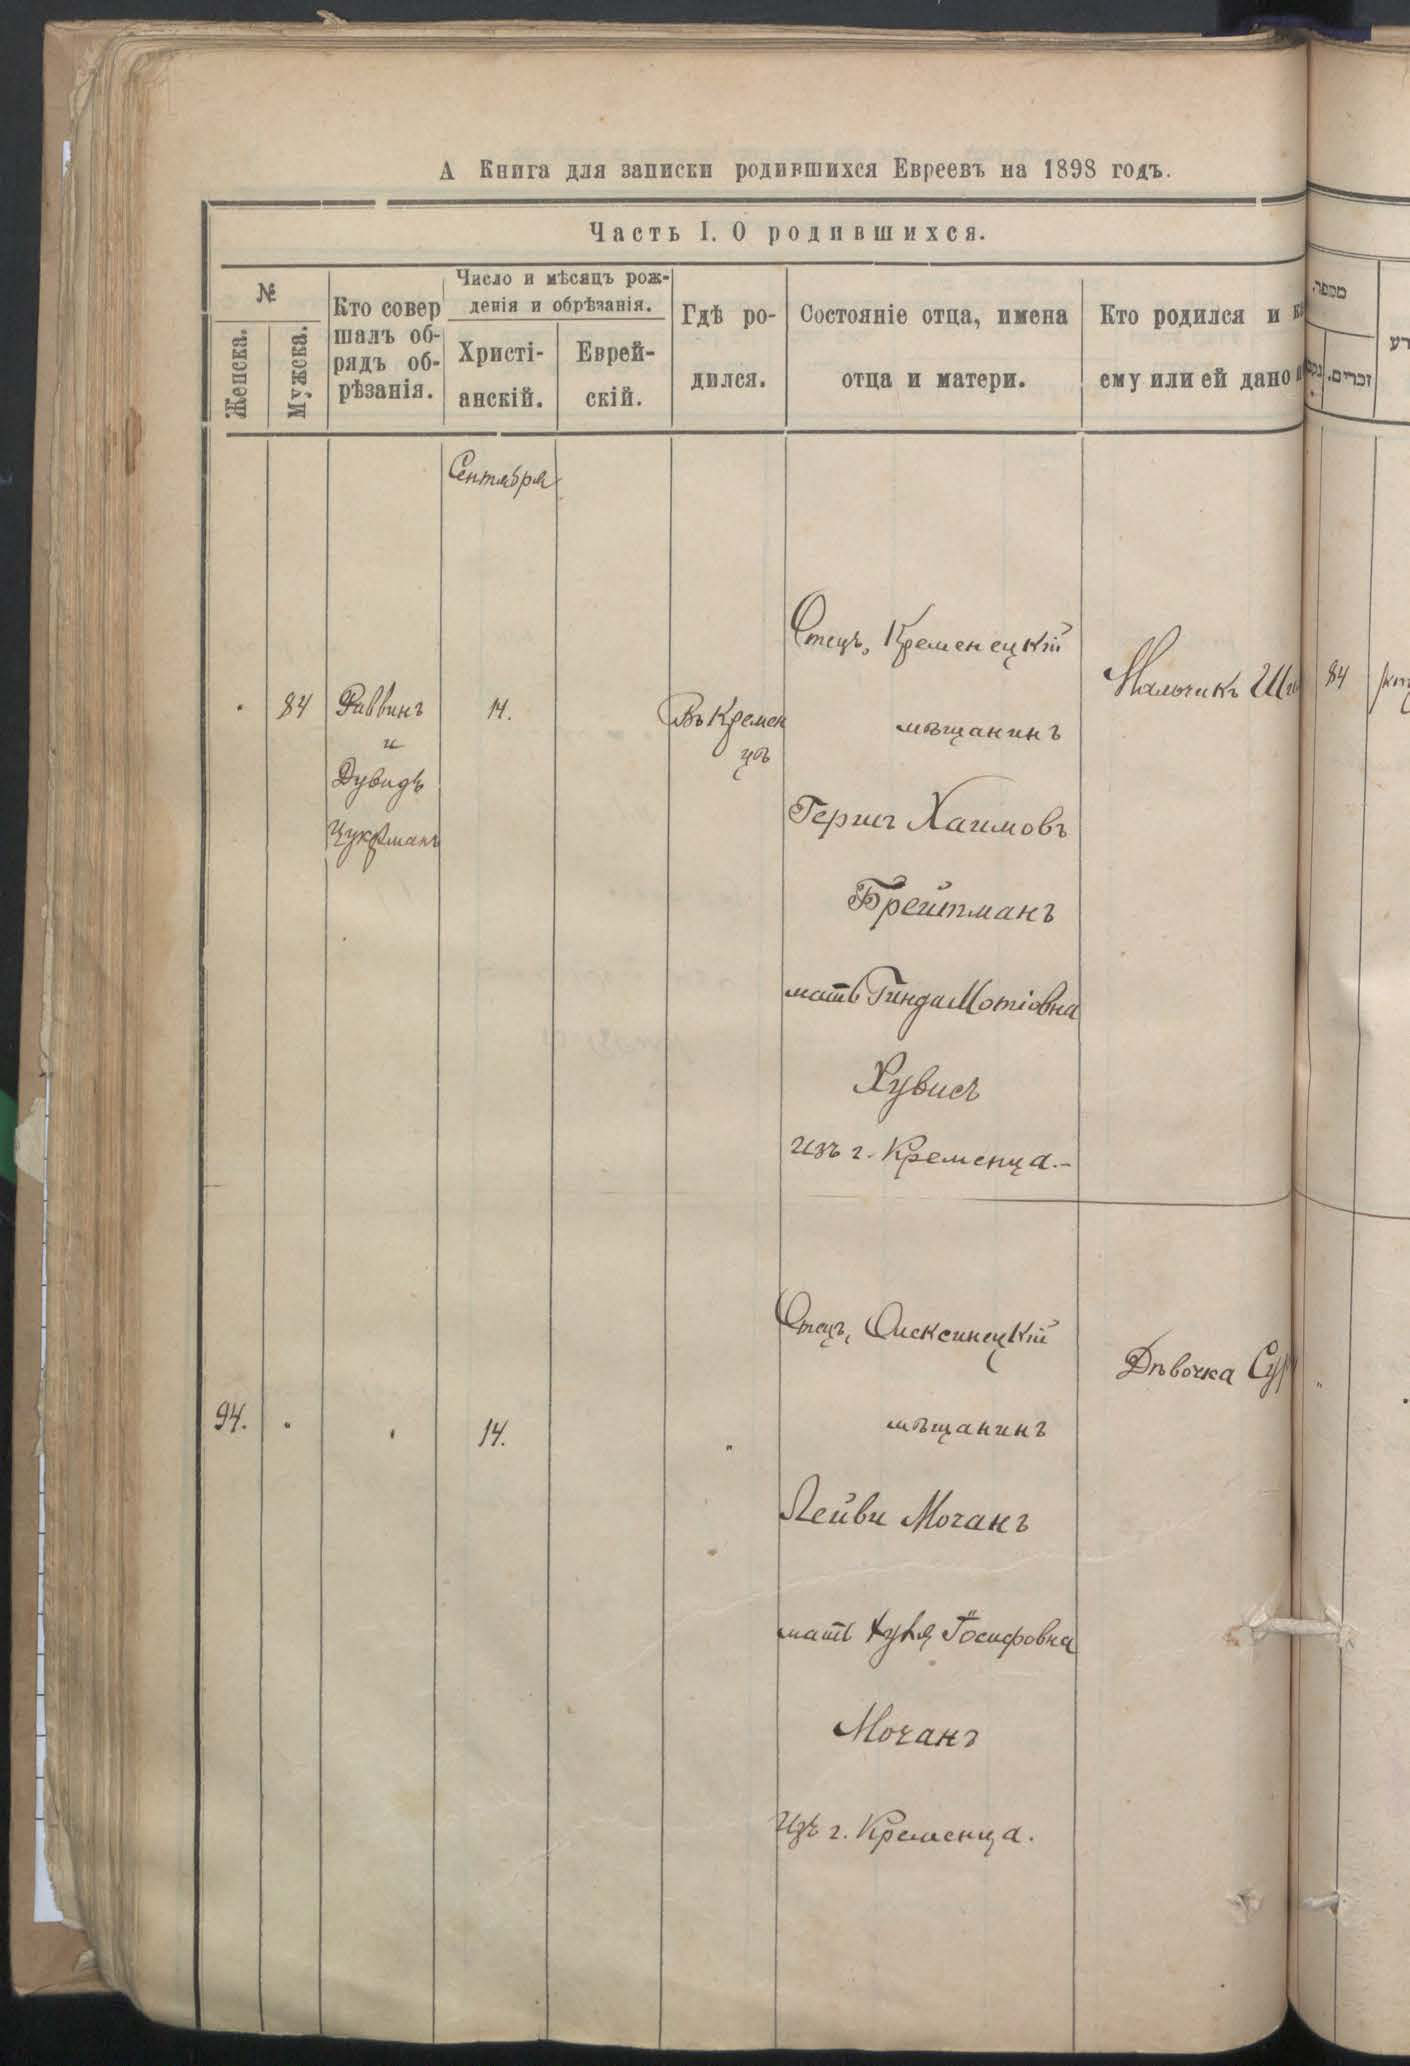 А Книга для записки родившихся Евреевъ на 1898 годъ.
Часть I. О родившихся.
№
Женска.
Мужска.
Кто совер
шалъ об-
рядъ об-
рѣзанія.
Число и мѣсяцъ рож-
денія и обрѣзанія.
Христі-
анскій.
Еврей-
скій.
Гдѣ ро-
дился.
Состояніе отца, имена
отца и матери.
Кто родился и
ему или ей дано
מספר.
זכרים.
Сентября
84
Раввинъ
и
Дувидъ
Цукрманъ
14.
Въ Кремен
цѣ
Отецъ, Кременецкій
мѣщанинъ
Гершъ Хаимовъ
Брейтманъ
мать Гинда Мотіовна
Хувисъ
изъ г. Кременца.-
Мальчикъ
84
94.
14.
"
Отецъ, Олексинецкій
мѣщанинъ
Лейви Мочанъ
мать Іосифовна
Мочанъ
изъ г. Кременца.
Дѣвочка